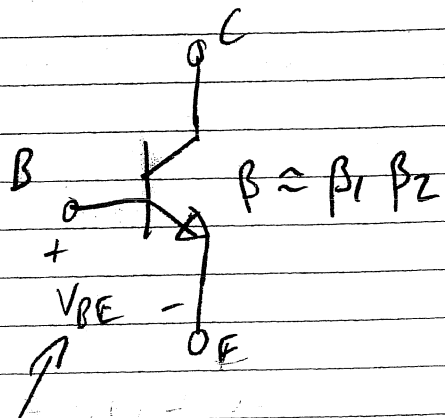 C
B
β ≃ β1 β2
+
VBE -
E